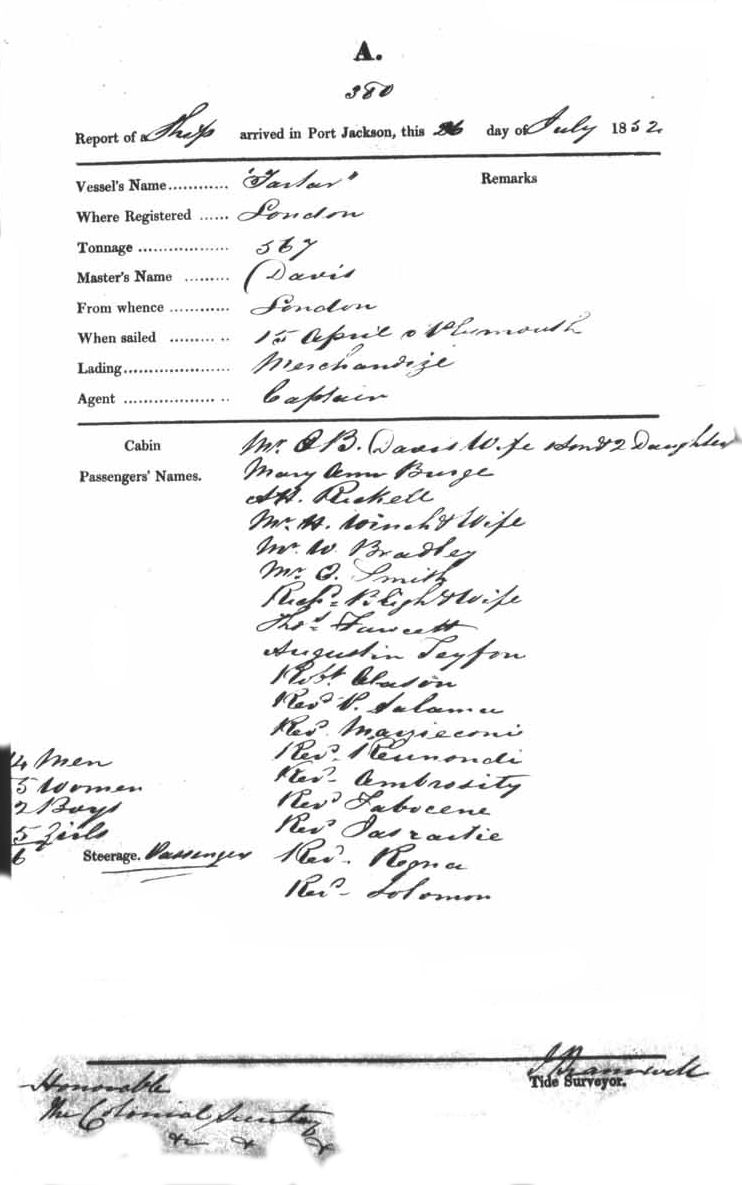 A.
380
Report of a Ship arrived in Port Jackson, this 26 day of July 1852
Vessel's Name............ "Tartar" Remarks
Where Registered ...... London
Tonnage .................. 567
Master's Name ......... Davis
From whence ............ London
When sailed ......... .. 15 April Plymouth
Lading..................... Merchandize
Agent ................ .. Captain
Cabin Mr. B. Davis Wife Son & 2 Daughter
Passengers' Names. Mary Ann Burge
A.H. Rickell
Mr. H. Winch & Wife
Mr. W. Bradley
Mr. Smith
Richd. Bligh & Wife
Thos. Fawcett
Augustin Teyfon
Robt. Alason
Revd. P. Salama
Revd. Mazzieconi
Revd. Reunondi
Revd. Ambrosity
Revd. Tabocene
Revd.
Revd. Regna
Revd. Solomon
4 Men
5 Women
2 Boys
5 Girls
6
Steerage. Passenger
Tide Surveyor.
Honorable
The Colonial
& &